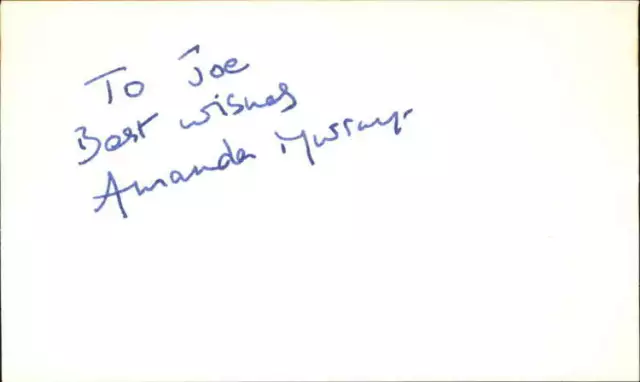 To Joe
Best wishes
Amanda Murray